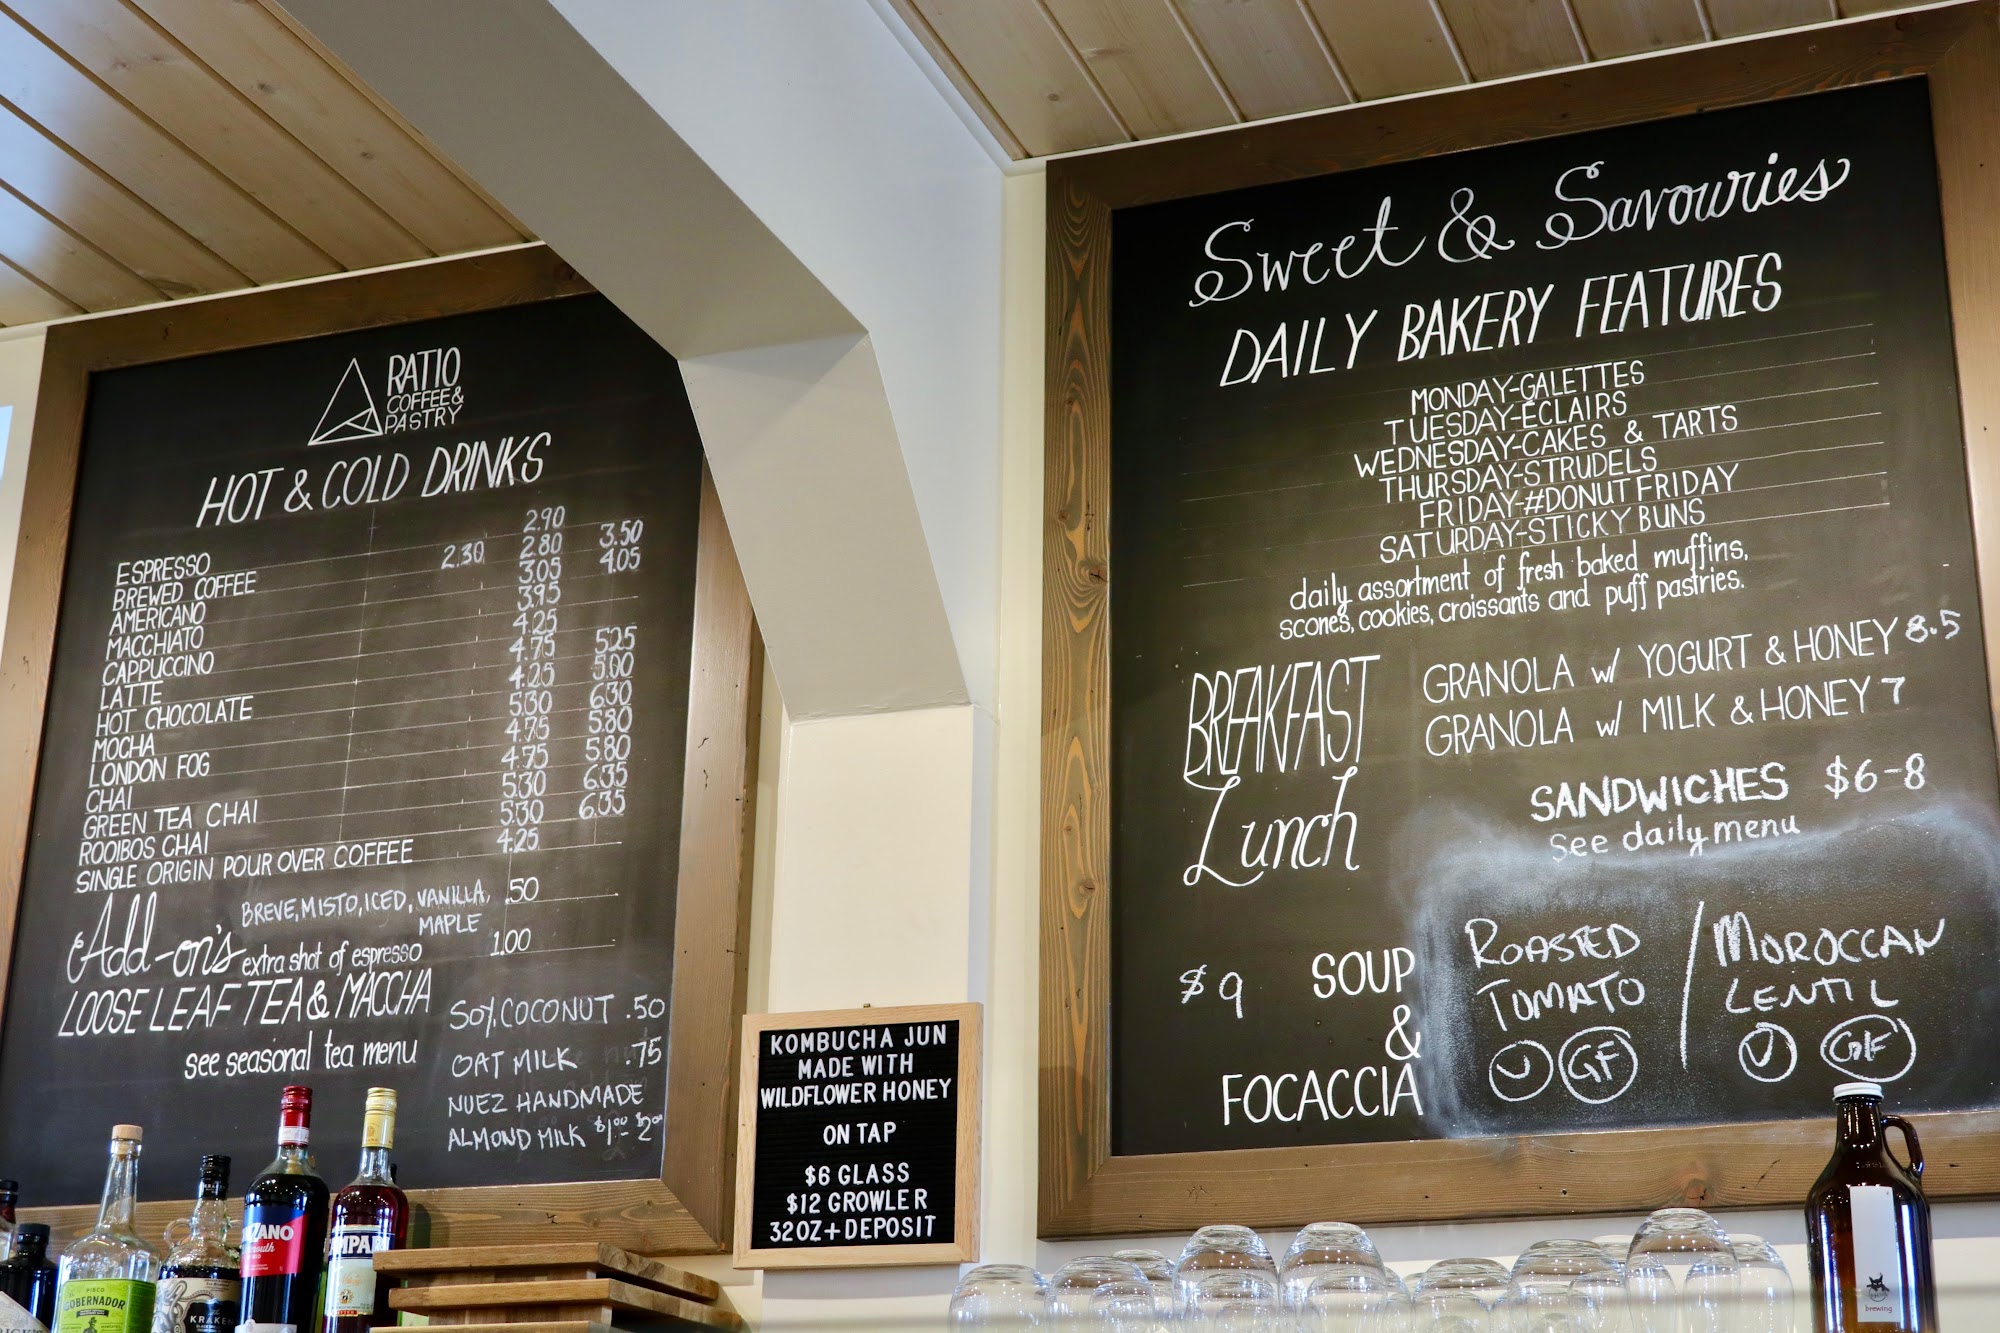 RATIO
COFFEE &
PASTRY
HOT & COLD DRINKS
ESPRESSO 2.90
BREWED COFFEE 2.30 2.80 3.50
AMERICANO 3.05 4.05
MACCHIATO 3.95
CAPPUCCINO 4.25
LATTE 4.75 5.25
HOT CHOCOLATE 4.25 5.00
MOCHA 5.30 6.30
LONDON FOG 4.75 5.80
CHAI 4.75 5.80
GREEN TEA CHAI 5.30 6.35
ROOIBOS CHAI 5.30 6.35
SINGLE ORIGIN POUR OVER COFFEE 4.25
Add-on's BREVE, MISTO, ICED, VANILLA, .50
MAPLE
extra shot of espresso 1.00
LOOSE LEAF TEA & MACCHA
see seasonal tea menu
SOY, COCONUT .50
OAT MILK .75
NUEZ HANDMADE
ALMOND MILK $1.00 - $2.00
KOMBUCHA JUN
MADE WITH
WILDFLOWER HONEY
ON TAP
$6 GLASS
$12 GROWLER
32OZ + DEPOSIT
Sweet & Savouries
DAILY BAKERY FEATURES
MONDAY-GALETTES
TUESDAY-ÉCLAIRS
WEDNESDAY-CAKES & TARTS
THURSDAY-STRUDELS
FRIDAY-#DONUTFRIDAY
SATURDAY-STICKY BUNS
daily assortment of fresh baked muffins,
scones, cookies, croissants and puff pastries.
BREAKFAST
GRANOLA w/ YOGURT & HONEY 8.5
GRANOLA w/ MILK & HONEY 7
Lunch
SANDWICHES $6-8
See daily menu
$9 SOUP
&
FOCACCIA
ROASTED
TOMATO
V GF
/ MOROCCAN
LENTIL
V GF
PISCO
GOBERNADOR
KRAKEN
ZANO
MPARI
brewing